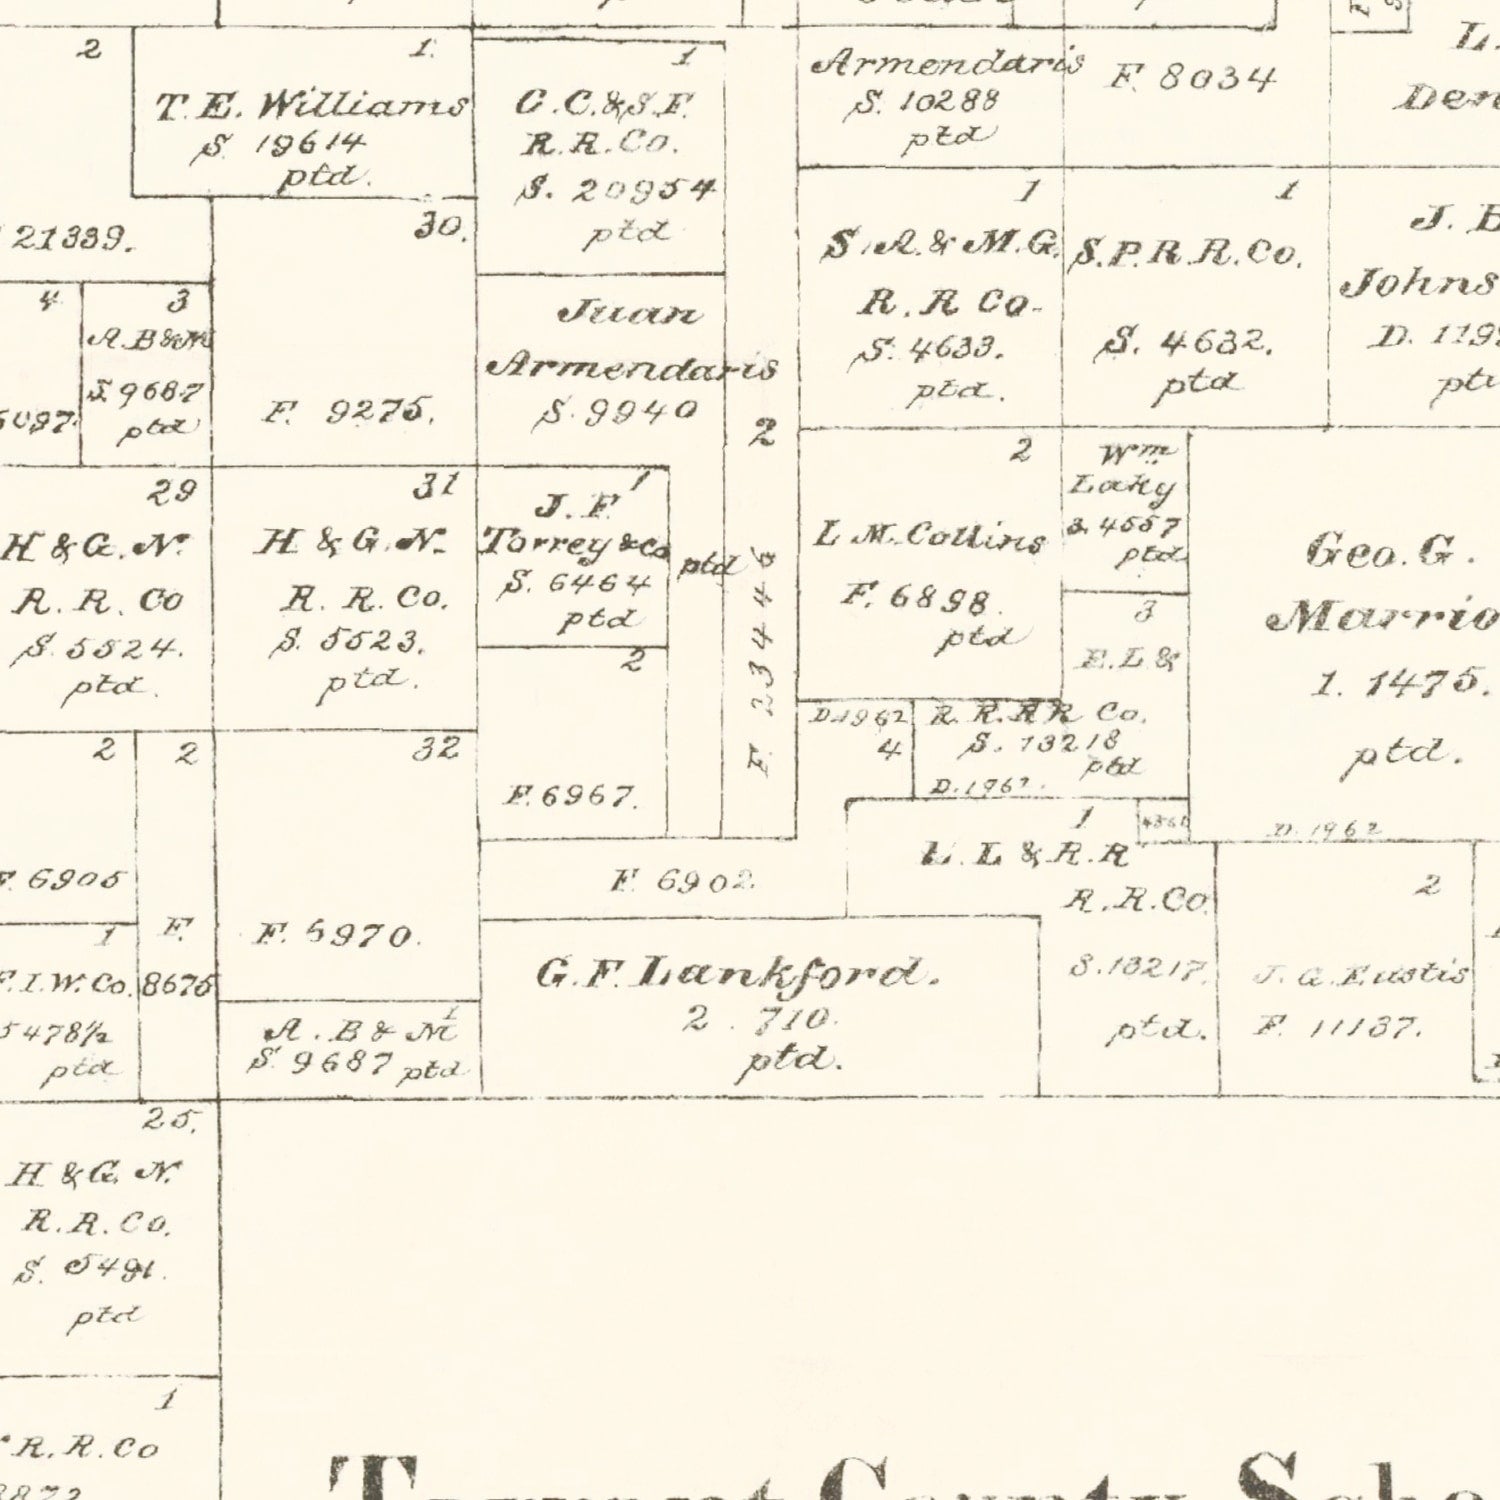 2
1.
T. E. Williams
S. 19614
ptd.
21339.
30.
F. 9275.
4
3
A. B & M
S. 9687
ptd
1
G. C. & S. F.
R. R. Co.
S. 20954
ptd
Juan
Armendaris
S. 9940
2
ptd
F. 23446
Armendaris
S. 10288
ptd
F. 8034
L.
1
S. A. & M. G.
R. R Co.
S. 4633.
ptd.
1
S. P. R. R. Co.
S. 4632.
ptd
J.
Johns
D.
29
H & G. N.
R. R. Co
S. 5524.
ptd.
31
H & G. N.
R. R. Co.
S. 5523.
ptd.
1
J. F.
Torrey & Co
S. 6464
ptd
2
F. 6967.
2
L M. Collins
F. 6898.
ptd
Wm
Lahy
S. 4557
ptd
3
E. L &
R. R. R R Co.
S. 13218
ptd
D. 1962.
D. 1962
4
Geo. G.
Marrio
1. 1475.
ptd.
D. 1962
2
F. 6905
2
F.
8675
32
F. 6970.
F. 6902.
1
L. L & R. R
R. R. Co.
S. 13217.
ptd.
2
J. G. Eustis
F. 11137.
1
F. I. W. Co.
5478½
ptd
1
A. B & M
S. 9687 ptd
G. F. Lankford.
2. 710.
ptd.
25.
H & G. N.
R. R. Co.
S. 5491.
ptd
1
R. R. Co
Tarrant County Scho